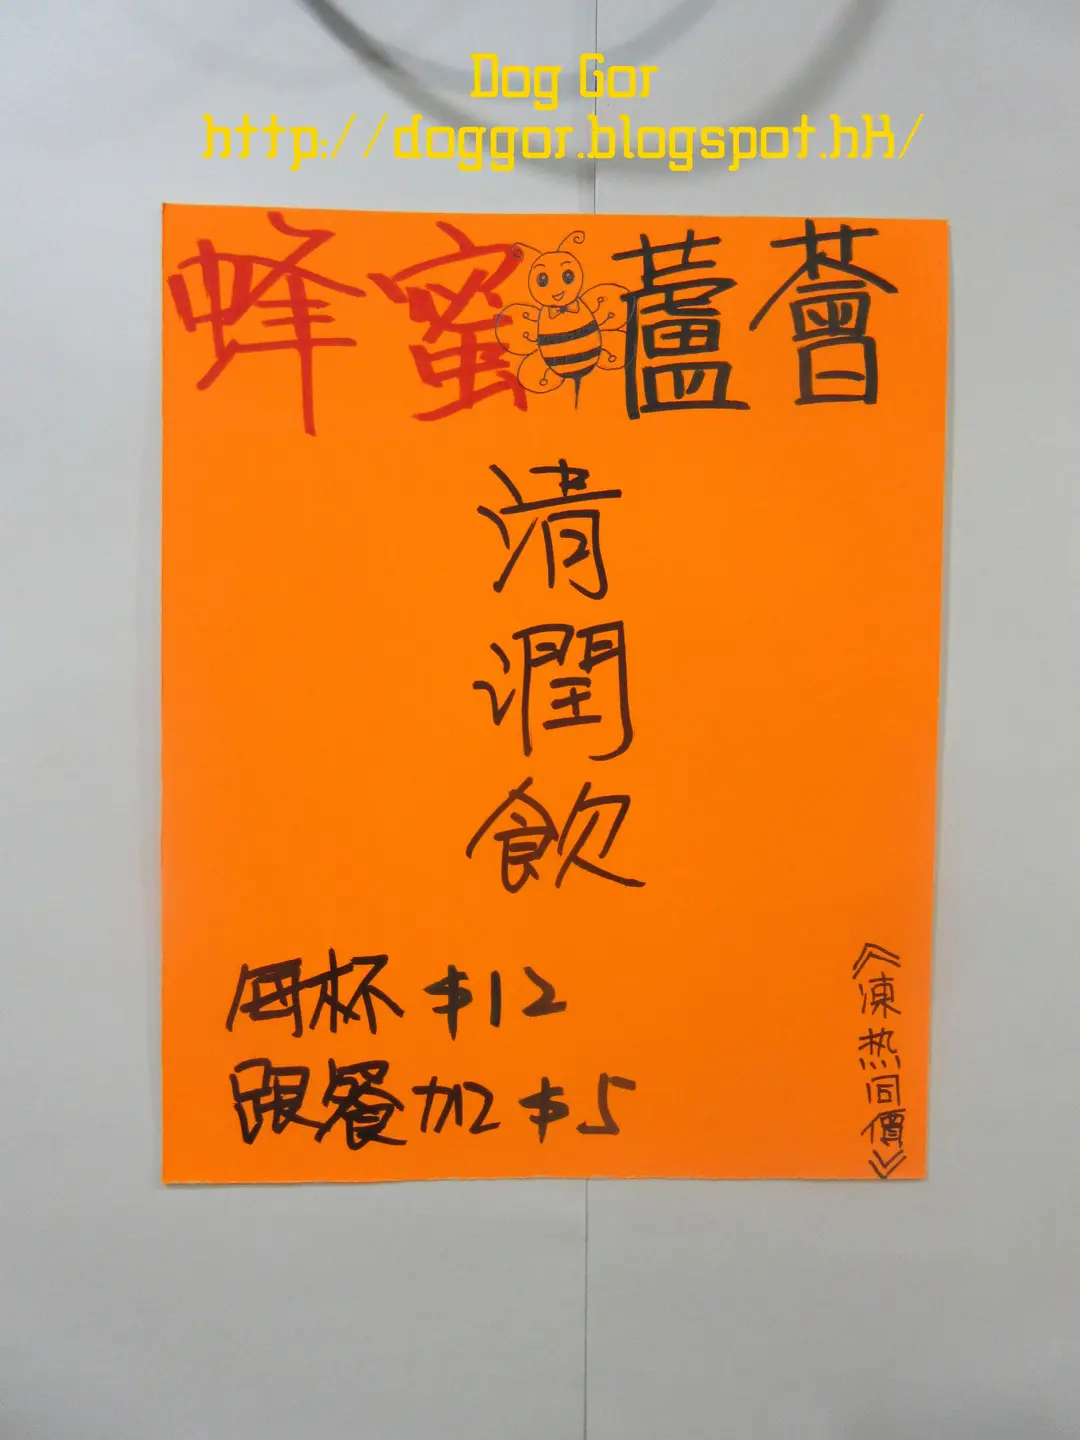 Dog Gor
http://doggor.blogspot.hk/
蜂蜜蘆薈
清
潤
飲
每杯 $12
跟餐加 $5
《凍热同價》